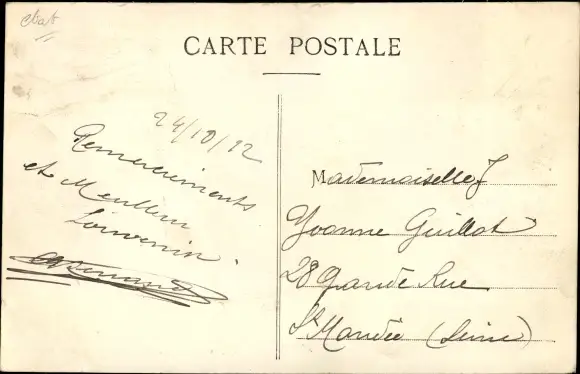 CARTE POSTALE
24/10/12
Remerciements
et Meilleur
Souvenir
Mademoiselle
Yvonne Guillot
28 Grande Rue
St Mandée (Seine)